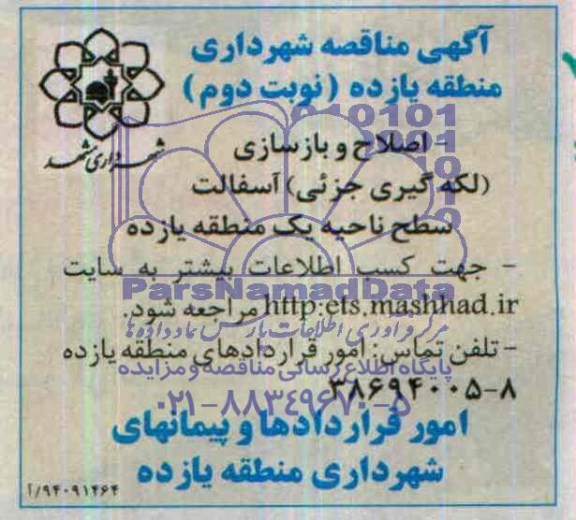 آگهی مناقصه شهرداری
منطقه یازده (نوبت دوم)
شهرداری مشهد
- اصلاح و بازسازی
(لکه گیری جزئی) آسفالت
سطح ناحیه یک منطقه یازده
- جهت کسب اطلاعات بیشتر به سایت
ParsNamadData
http:ets.mashhad.ir مراجعه شود.
مرکز فرآوری اطلاعات پارس نماد داده ها
- تلفن تماس: امور قراردادهای منطقه یازده
پایگاه اطلاع رسانی مناقصه و مزایده
۳۸۶۹۴۰۰۵-۸
۰۲۱-۸۸۳۴۹۶۷۰-۵
امور قراردادها و پیمانهای
شهرداری منطقه یازده
۹۴۰۹۱۴۶۴/آ